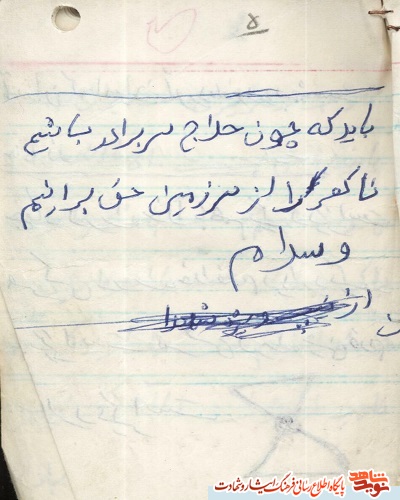 ۵
باید که چون حلاج سربدار باشیم
تا کفر را از سرزمین حق برانیم
وسلام
از
نوید شاهد
پایگاه اطلاع رسانی فرهنگ ایثار و شهادت